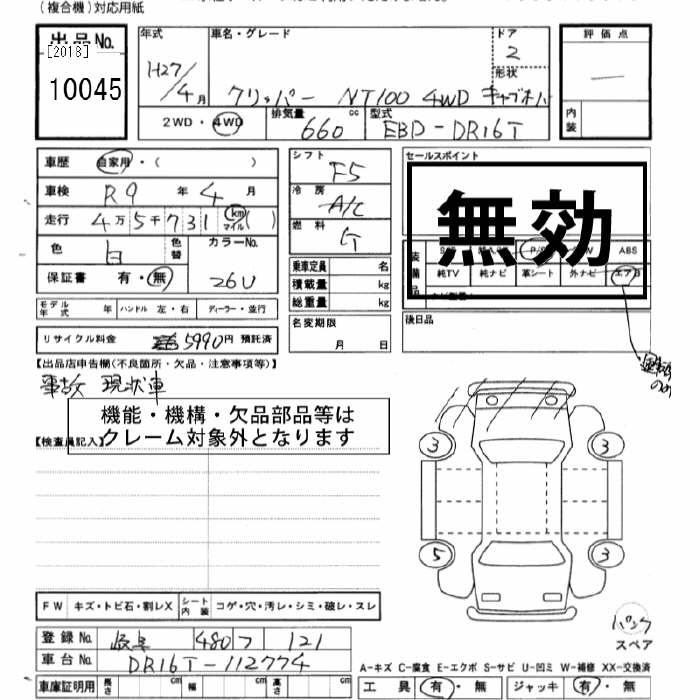 (複合機)対応用紙
出品No.
[2013]
10045
年式
H27/4月
車名・グレード
クリッパー NT100 4WD
ドア
2
形状
キャブオーバ
評価点
内装
2WD・4WD
排気量 660 cc
型式 EBD-DR16T
車歴 自家用・( )
車検 R9年 4月
走行 4万5千731 km マイル ( )
色 白 色替
カラーNo. 26U
保証書 有・無
シフト F5
冷房 A/C
燃料 G
乗車定員 名
積載量 kg
総重量 kg
名変期限
月 日
セールスポイント
無効
P/S
ABS
純TV 純ナビ 革シート 外ナビ エアB
後日品
モデル年式 年 ハンドル 左・右 ディーラー・並行
リサイクル料金 5990円 預託済
【出品店申告欄(不良箇所・欠品・注意事項等)】
事故 現状車
機能・機構・欠品部品等は
クレーム対象外となります
【検査員記入】
3
3
5
3
FW キズ・トビ石・割レX シート内装 コゲ・穴・汚レ・シミ・破レ・スレ
パンク
スペア
登録No. 岐阜 480 フ 121
車台No. DR16T-112774
A-キズ C-腐食 E-エクボ S-サビ U-凹ミ W-補修 XX-交換済
車庫証明用 長さ cm 幅 cm 高さ cm
工具 有・無 ジャッキ 有・無